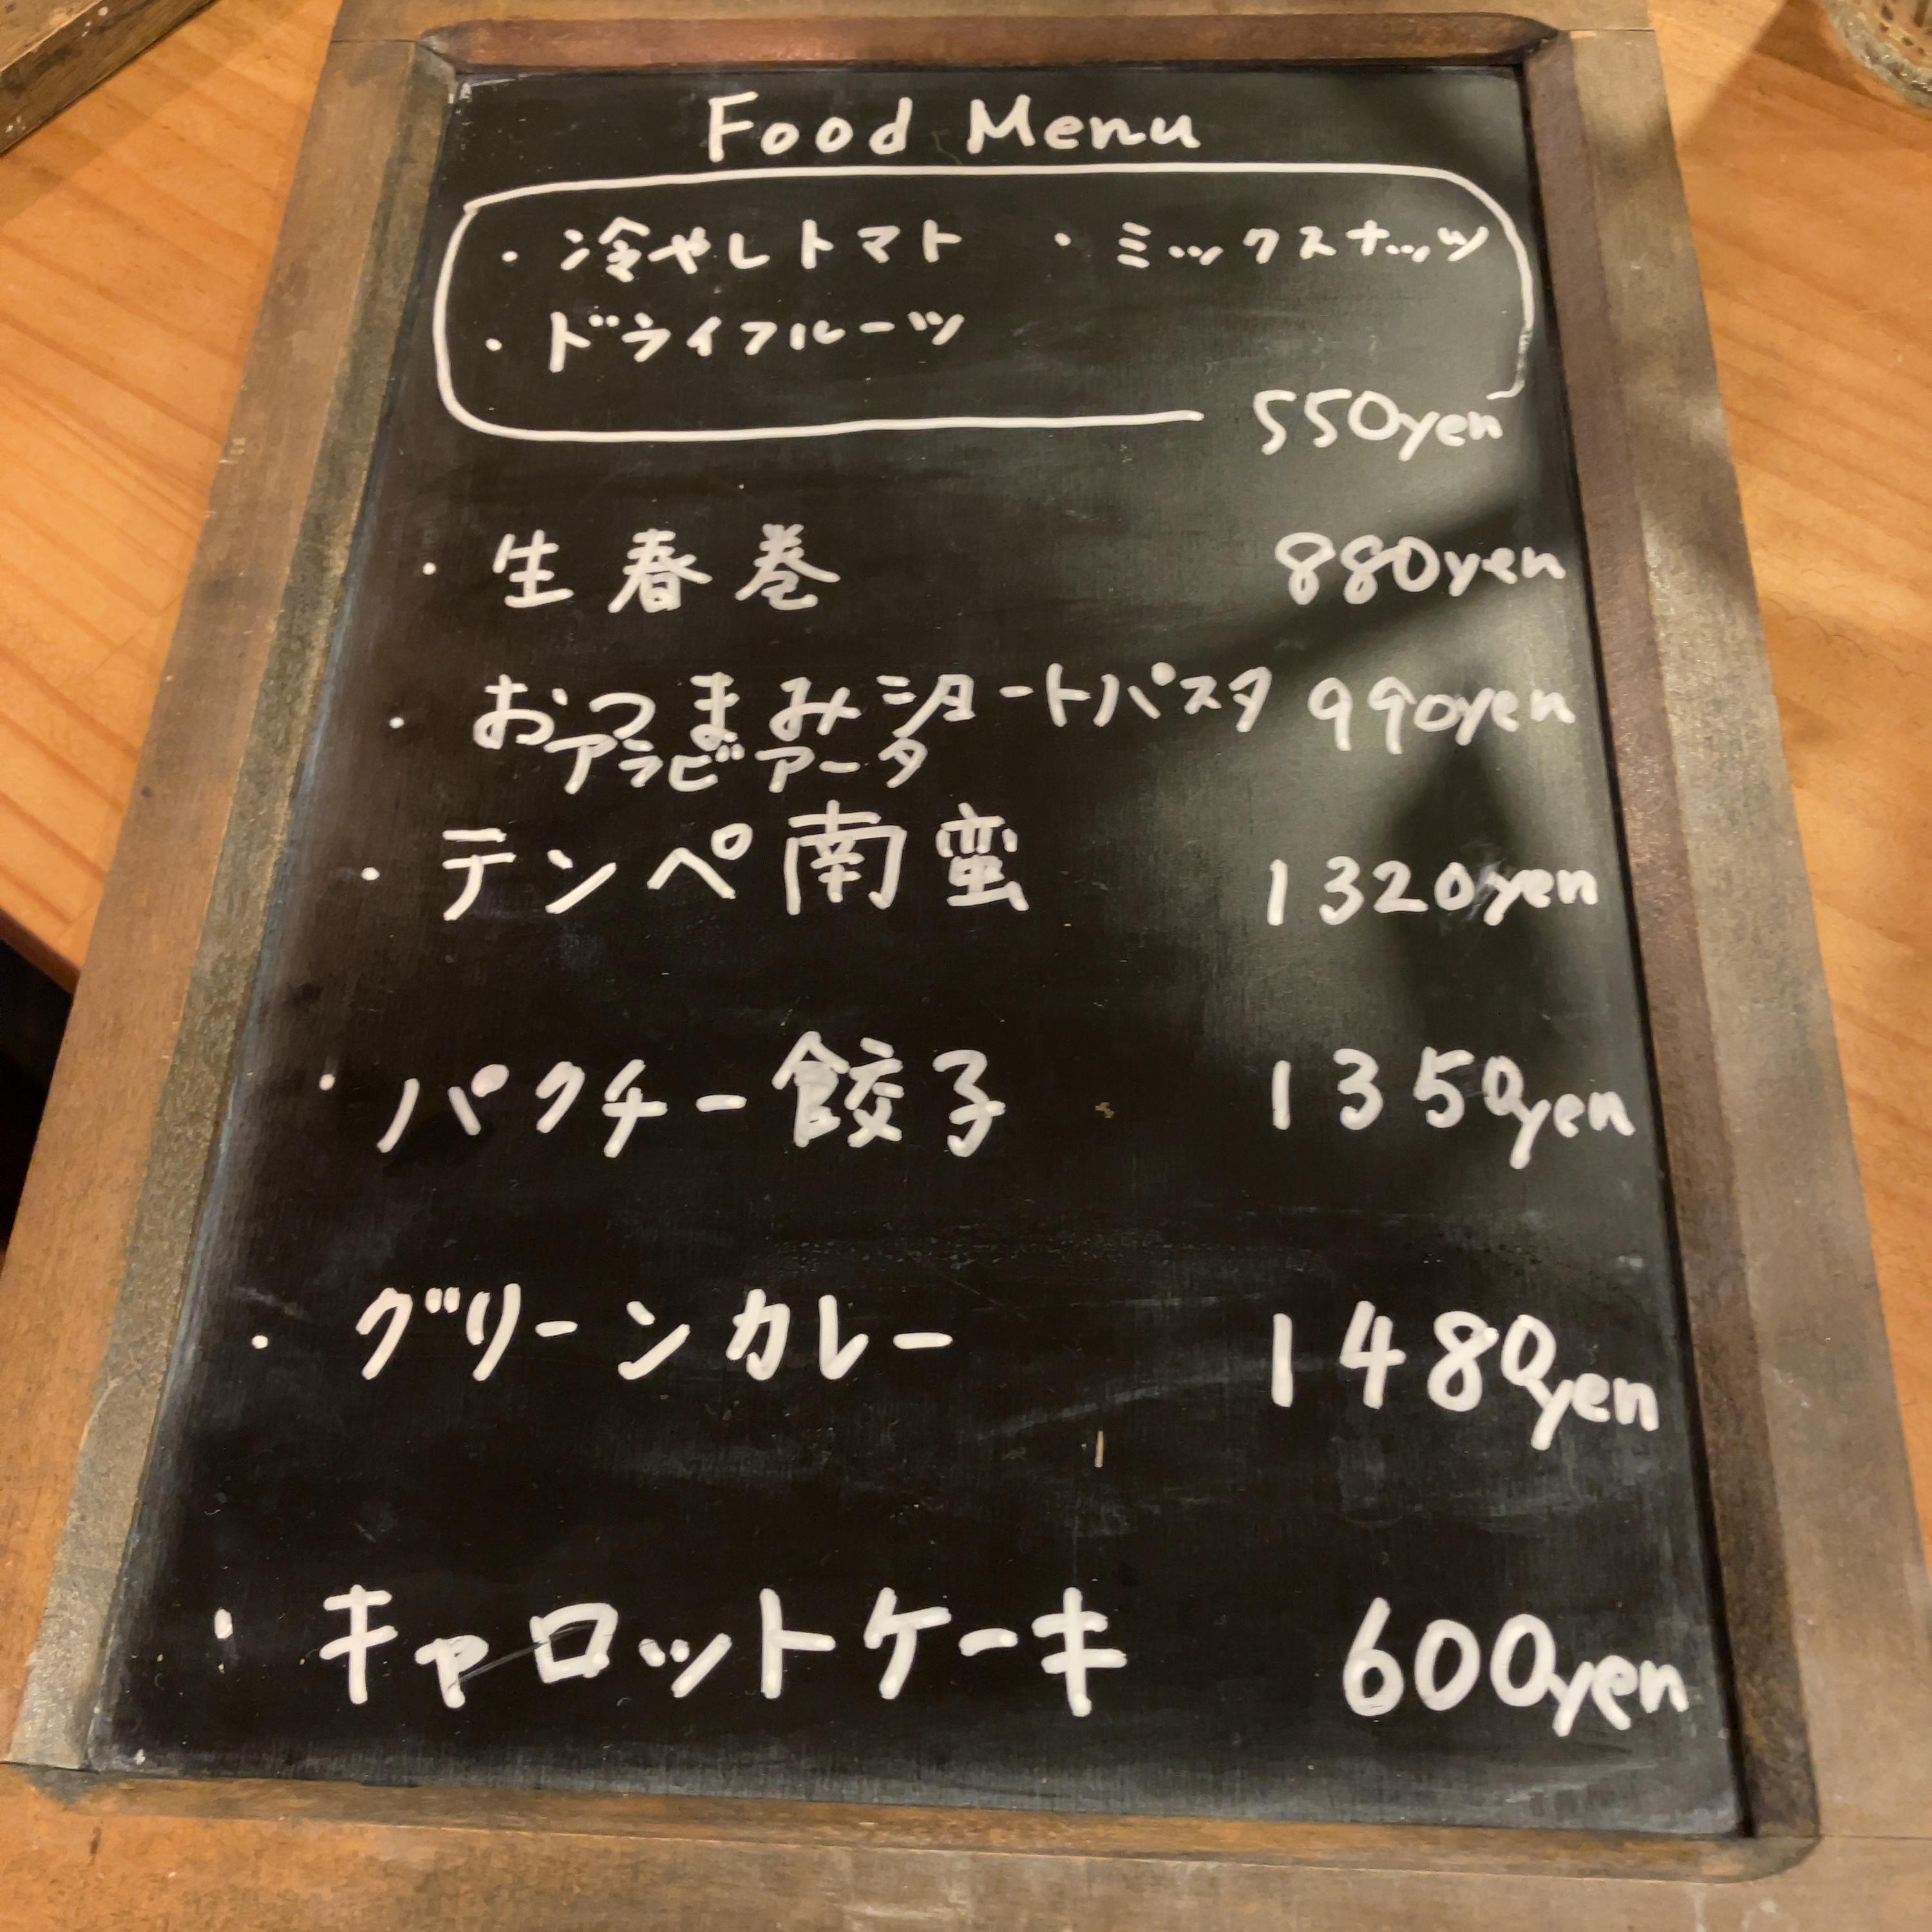 Food Menu
・冷やしトマト ・ミックスナッツ
・ドライフルーツ
550yen
・生春巻 880yen
・おつまみショートパスタ 990yen
アラビアータ
・テンペ南蛮 1320yen
・パクチー餃子 1350yen
・グリーンカレー 1480yen
・キャロットケーキ 600yen